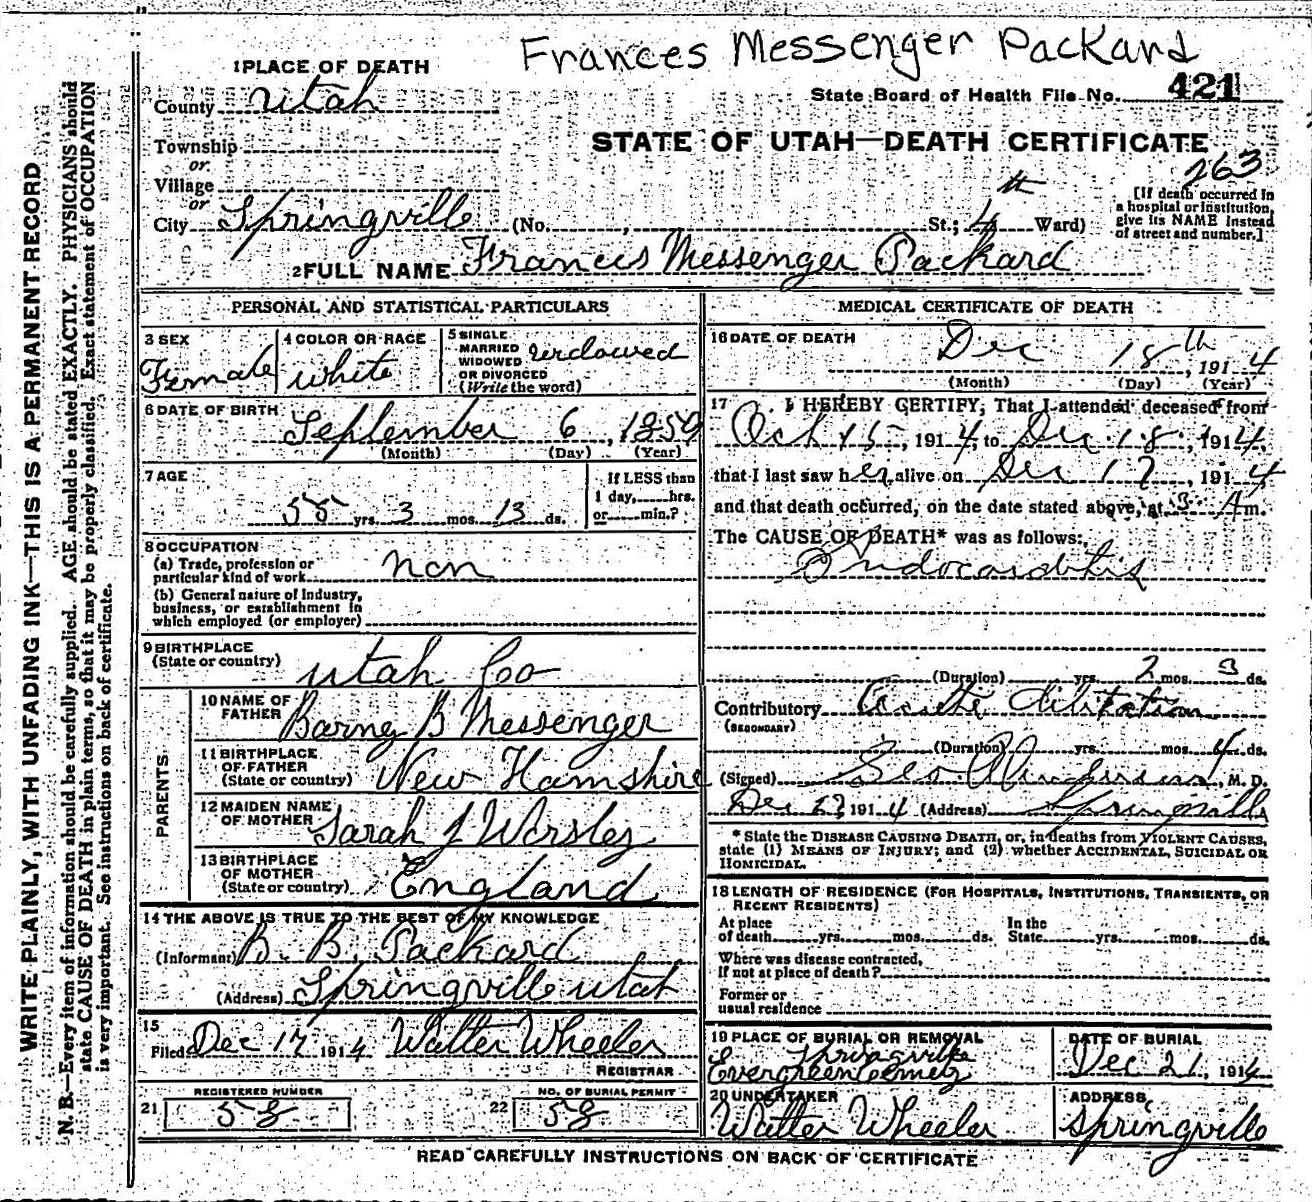 Frances Messenger Packard
1 PLACE OF DEATH
County Utah
State Board of Health File No. 421
Township
or
Village
or
City Springville (No. , St.; 4th Ward)
STATE OF UTAH—DEATH CERTIFICATE
263
[If death occurred in
a hospital or institution,
give its NAME instead
of street and number.]
2 FULL NAME Frances Messenger Packard
PERSONAL AND STATISTICAL PARTICULARS
3 SEX
Female
4 COLOR OR RACE
white
5 SINGLE
MARRIED
WIDOWED
OR DIVORCED
(Write the word)
widowed
6 DATE OF BIRTH
September 6, 1859
(Month) (Day) (Year)
7 AGE
55 yrs. 3 mos. 13 ds.
If LESS than
1 day, hrs.
or min.?
8 OCCUPATION
(a) Trade, profession or
particular kind of work non
(b) General nature of industry,
business, or establishment in
which employed (or employer)
9 BIRTHPLACE
(State or country) Utah Co
PARENTS
10 NAME OF
FATHER Barney B Messenger
11 BIRTHPLACE
OF FATHER
(State or country) New Hamshire
12 MAIDEN NAME
OF MOTHER Sarah J Worsley
13 BIRTHPLACE
OF MOTHER
(State or country) England
14 THE ABOVE IS TRUE TO THE BEST OF MY KNOWLEDGE
(Informant) B. B. Packard
(Address) Springville utah
15
Filed Dec 17 1914 Walter Wheeler
REGISTRAR
REGISTERED NUMBER
21 58
NO. OF BURIAL PERMIT
22 58
MEDICAL CERTIFICATE OF DEATH
16 DATE OF DEATH
Dec 18th, 1914
(Month) (Day) (Year)
17 I HEREBY CERTIFY, That I attended deceased from
Oct 15, 1914, to Dec 18, 1914,
that I last saw her alive on Dec 17, 1914
and that death occurred, on the date stated above, at 3 A m.
The CAUSE OF DEATH* was as follows:
Endocarditis
(Duration) yrs. 2 mos. 3 ds.
Contributory Acute dilitation
(SECONDARY)
(Duration) yrs. mos. 4 ds.
(Signed) Geo. M. D.
Dec 1914 (Address) Springville
* State the DISEASE CAUSING DEATH, or, in deaths from VIOLENT CAUSES,
state (1) MEANS OF INJURY; and (2) whether ACCIDENTAL, SUICIDAL OR
HOMICIDAL.
18 LENGTH OF RESIDENCE (FOR HOSPITALS, INSTITUTIONS, TRANSIENTS, OR
RECENT RESIDENTS)
At place
of death yrs. mos. ds.
In the
State yrs. mos. ds.
Where was disease contracted,
If not at place of death?
Former or
usual residence
19 PLACE OF BURIAL OR REMOVAL
Springville
Evergreen Cemety
DATE OF BURIAL
Dec 21, 1914
20 UNDERTAKER
Walter Wheeler
ADDRESS
Springville
READ CAREFULLY INSTRUCTIONS ON BACK OF CERTIFICATE
WRITE PLAINLY, WITH UNFADING INK—THIS IS A PERMANENT RECORD
N. B.—Every item of information should be carefully supplied. AGE should be stated EXACTLY. PHYSICIANS should
state CAUSE OF DEATH in plain terms, so that it may be properly classified. Exact statement of OCCUPATION
is very important. See instructions on back of certificate.